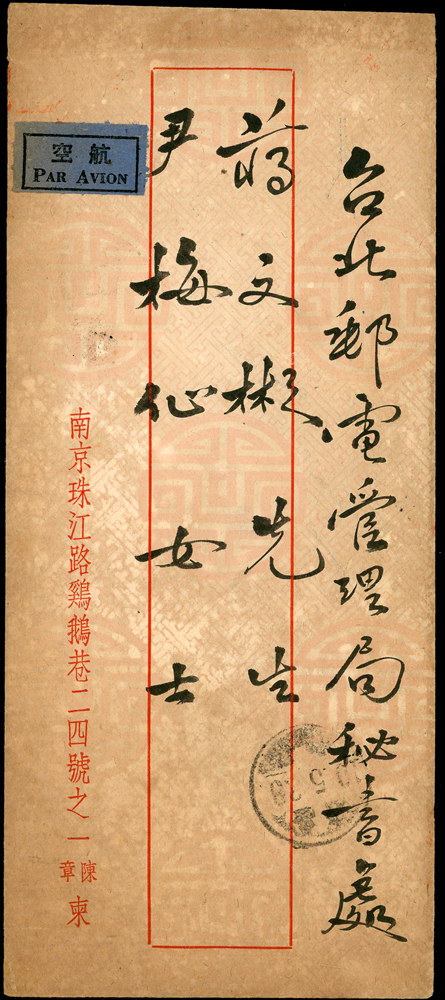 台北郵電管理局秘書處
蔣文彬先生
尹梅仙女士
航空
PAR AVION
南京珠江路鷄鵝巷二四號之一
陳章
柬